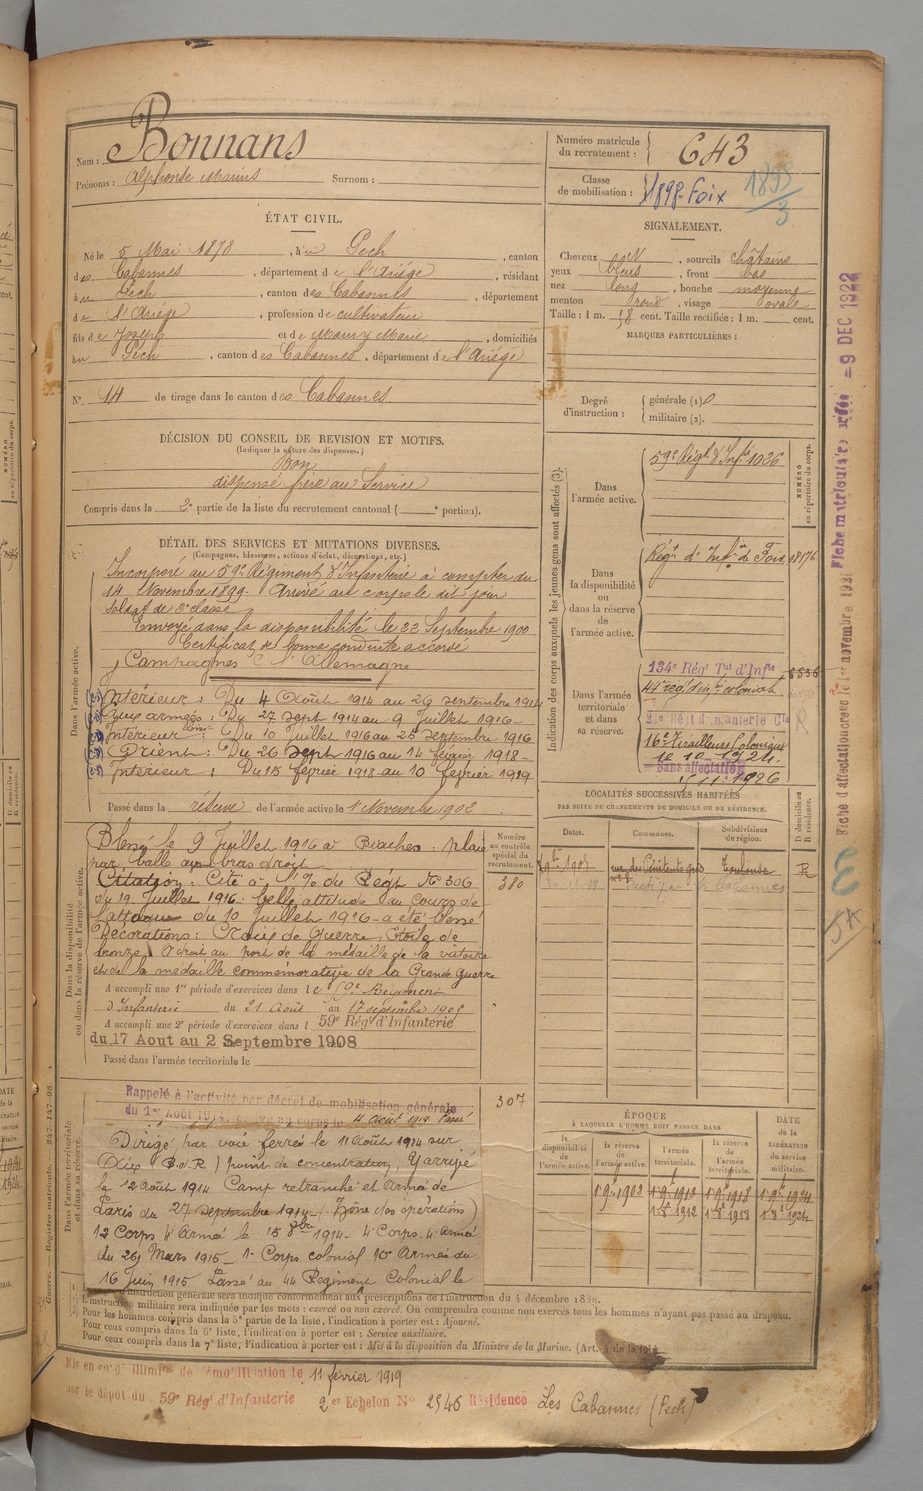 Nom : Bonnans
Prénoms : Alphonse Marius Surnom :
Numéro matricule du recrutement : 643
Classe de mobilisation : 1898 Foix
ÉTAT CIVIL.
Né le 5 Mai 1878, à Pech, canton
des Cabannes, département de l'Ariège, résidant
à Pech, canton des Cabannes, département
de l'Ariège, profession de cultivateur
fils de Joseph et de Maury Marie, domiciliés
à Pech, canton des Cabannes, département de l'Ariège
N° 14 de tirage dans le canton des Cabannes
SIGNALEMENT.
Cheveux, sourcils châtains
yeux bleus, front bas
nez long, bouche moyenne
menton rond, visage ovale
Taille : 1 m. 58 cent. Taille rectifiée : 1 m. cent.
MARQUES PARTICULIÈRES :
Degré d'instruction : générale (1)
militaire (2).
DÉCISION DU CONSEIL DE REVISION ET MOTIFS.
(Indiquer la nature des dispenses.)
Bon
dispensé frère au Service
Compris dans la 2e partie de la liste du recrutement cantonal ( e portion).
DÉTAIL DES SERVICES ET MUTATIONS DIVERSES.
(Campagnes, blessures, actions d'éclat, décorations, etc.)
Dans l'armée active.
Incorporé au 59e Régiment d'Infanterie à compter du
14 Novembre 1899. Arrivé au corps le dit jour
Soldat de 2e classe
Envoyé dans la disponibilité le 22 Septembre 1900
Certificat de bonne conduite accordé
Campagnes c l'Allemagne
Intérieur : Du 4 Août 1914 au 26 septembre 1914
aux armées : Du 27 Sept 1914 au 9 Juillet 1916
Intérieur : Du 10 Juillet 1916 au 25 septembre 1916
Orient : Du 26 Sept 1916 au 14 février 1918
Intérieur : Du 15 février 1918 au 10 février 1919
Passé dans la réserve de l'armée active le 1 Novembre 1902
Dans la disponibilité ou dans la réserve de l'armée active.
Blessé le 9 Juillet 1916 à Biaches : plaie
par balle avant bras droit
Citation : Cité à l'O. du Régt No 306
du 19 Juillet 1916. Belle attitude au Cours de
l'attaque du 10 Juillet 1916 a été blessé
Décorations : Croix de Guerre, étoile de
bronze. A droit au port de la médaille de la victoire
et de la médaille commémorative de la Grande Guerre
A accompli une 1re période d'exercices dans le 59e Régiment
d'Infanterie du 21 Août au 17 septembre 1905
A accompli une 2e période d'exercices dans l 59e Régt d'Infanterie
du 17 Aout au 2 Septembre 1908
Passé dans l'armée territoriale le
Numéro au contrôle spécial du recrutement.
380
307
Dans l'armée territoriale et dans sa réserve.
Rappelé à l'activité par décret de mobilisation générale
du 1er Août 1914, arrivé au corps le 4 Août 1914. Passé
Dirigé par voie ferrée le 11 Août 1914 sur
(point de concentration, Y arrivé
le 12 Août 1914 Camp retranché et Armée de
Paris du 27 septembre 1914 (Zône des opérations)
12 Corps d'Armée le 15 8bre 1914 4e Corps 4e Armée
du 26 Mars 1915 1er Corps colonial 10e Armée du
16 Juin 1915 Passé au 44 Régiment Colonial le
Indication des corps auxquels les jeunes gens sont affectés (3).
NUMÉRO au répertoire du corps.
Dans l'armée active.
59e Régt d'Infie 1026
Dans la disponibilité ou dans la réserve de l'armée active.
Régt d'Infie de Foix 18176
Dans l'armée territoriale et dans sa réserve.
134e Régt Tal d'Infie
44e régt d'inf. coloniale
21e Régt d'Infanterie Cle
16e Tirailleurs Coloniaux
Sans affectation
LOCALITÉS SUCCESSIVES HABITÉES
PAR SUITE DE CHANGEMENTS DE DOMICILE OU DE RÉSIDENCE.
Dates. Communes. Subdivisions de région. D domicile ou R résidence.
rue des Pénitents gris Toulouse R
ÉPOQUE
À LAQUELLE L'HOMME DOIT PASSER DANS
la disponibilité de l'armée active. la réserve de l'armée active. l'armée territoriale. la réserve de l'armée territoriale. DATE de la LIBÉRATION du service militaire.
1 9bre 1902 1 9bre 1912 1 9bre 1918 1 9bre 1924
1 8 1912 1 8 1918 1 8 1924
Fiche matriculaire vérifiée = 9 DEC 1922
L'instruction générale sera indiquée conformément aux prescriptions de l'instruction du 4 décembre 1889.
L'instruction militaire sera indiquée par les mots : exercé ou non exercé. On comprendra comme non exercés tous les hommes n'ayant pas passé au drapeau.
Pour les hommes compris dans la 5e partie de la liste, l'indication à porter est : Ajourné.
Pour ceux compris dans la 6e liste, l'indication à porter est : Service auxiliaire.
Pour ceux compris dans la 7e liste, l'indication à porter est : Mis à la disposition du Ministre de la Marine. (Art. 4 de la loi)
Mis en congé illimité de démobilisation le 11 février 1919
sur le dépot du 59e Régt d'Infanterie 2er Echelon No 2546 Résidence Les Cabannes (Pech)